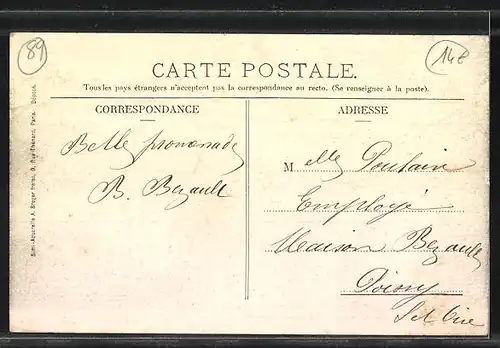 89
148
CARTE POSTALE.
Tous les pays étrangers n'acceptent pas la correspondance au recto. (Se renseigner à la poste).
CORRESPONDANCE
ADRESSE
Belle promenade
B. Bezault
Melle Poulain
Employé
Maison Bezault
Poissy
S et Oise
Simi-Aquarelle A. Breger frères, 9, Rue Thénard, Paris. Déposé.